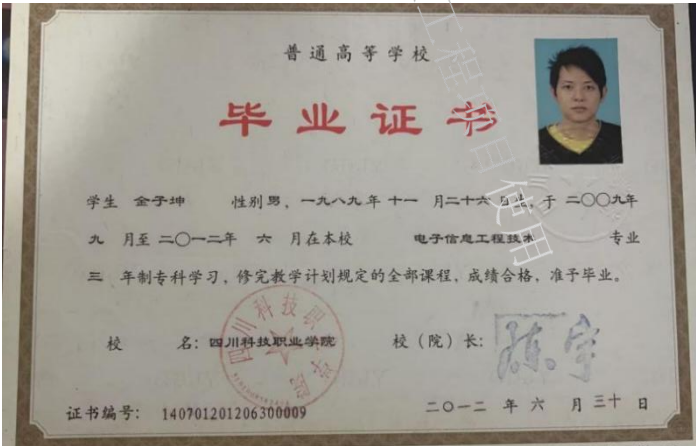 普通高等学校
毕业证书
工程项目使用
学生 金子坤 性别男，一九八九年十一月二十六日生，于二〇〇九年
九月至二〇一二年六月在本校 电子信息工程技术 专业
三年制专科学习，修完教学计划规定的全部课程，成绩合格，准予毕业。
四川科技职业学院
校 名：四川科技职业学院 校（院）长：
证书编号： 140701201206300009 二〇一二年六月三十日